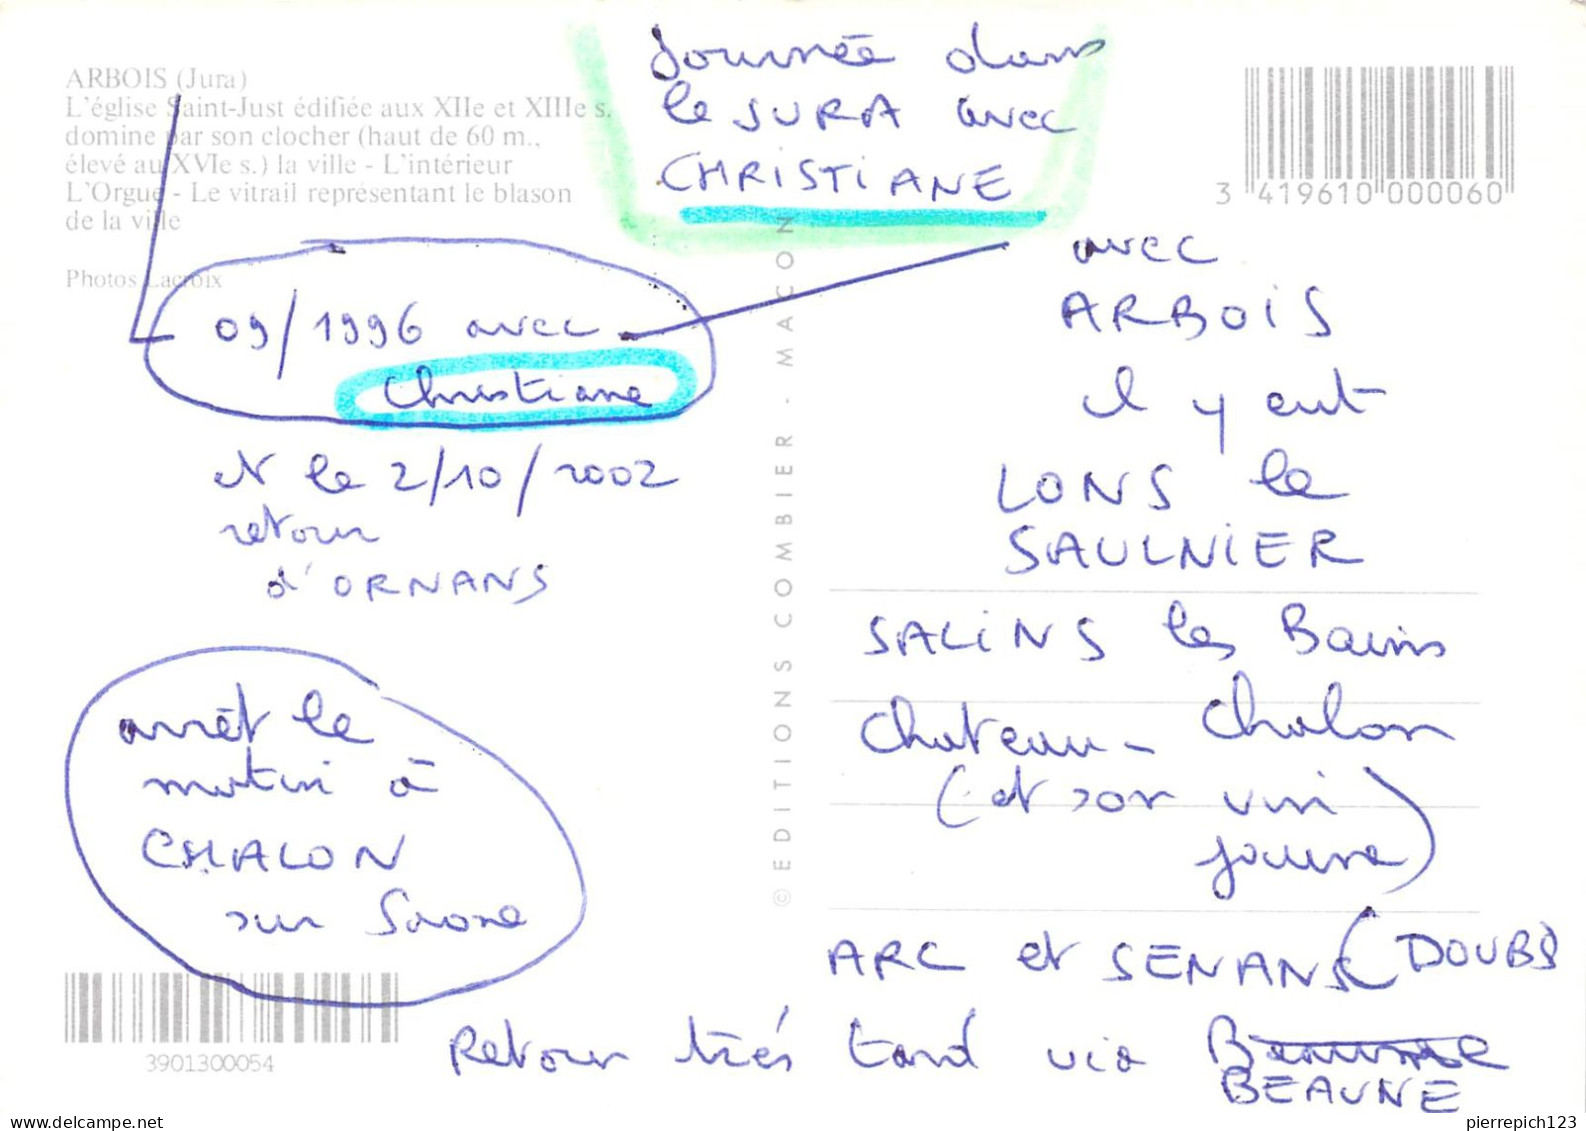 ARBOIS (Jura)
L'église Saint-Just édifiée aux XIIe et XIIIe s.
domine par son clocher (haut de 60 m.,
élevé au XVIe s.) la ville - L'intérieur
L'Orgue - Le vitrail représentant le blason
de la ville
Photos Lacroix
Journée dans
le JURA avec
CHRISTIANE
3 419610 000060
09/1996 avec
Christiane
et le 2/10/2002
retour
d'ORNANS
arrêt le
matin à
CHALON
sur Saone
3901300054
© EDITIONS COMBIER - MACON
avec
ARBOIS
il y eut
LONS le
SAULNIER
SALINS les Bains
Chateau - Chalon
(et son vin
jaune)
ARC et SENANS (DOUBS)
Retour très tard via Beaune
BEAUNE
www.delcampe.net
pierrepich123